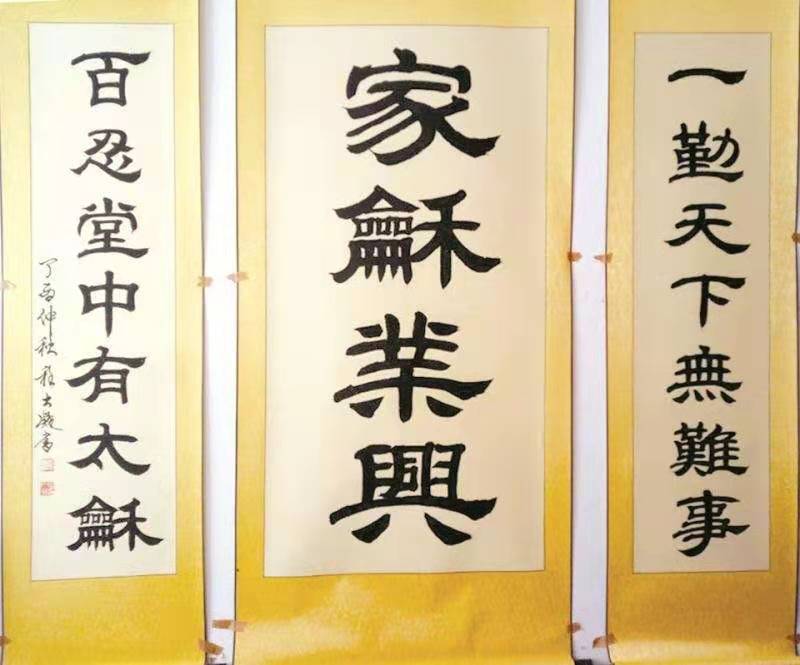 一勤天下無難事
家龢業興
百忍堂中有太龢
丁酉仲秋程士凝書